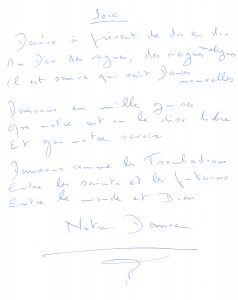 Danse à présent de dos en dos
Au Dos des vagues, des vagues
Il est encore qui soit Danses nouvelles
Dansons en mille guises
Que notre art on le dise libre
Et gai notre savoir
Dansons comme les Troubadours
Entre les saints et les putains
Entre le monde et Dieu
Notre Danse